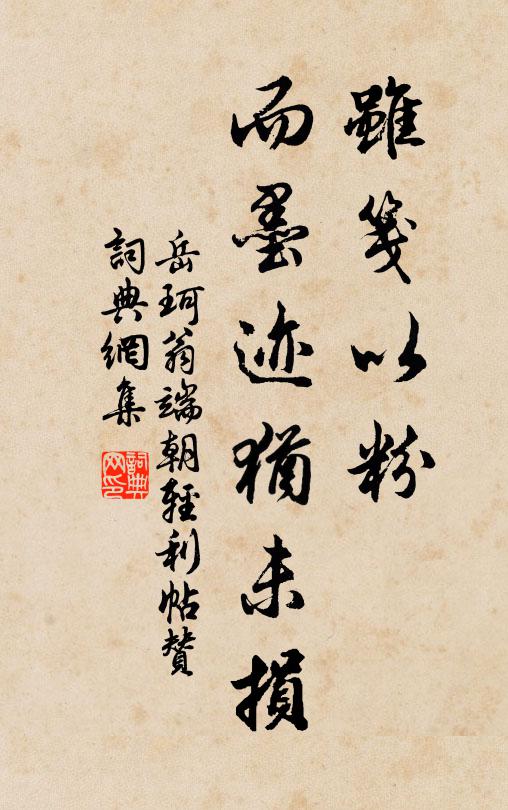 雖箋以粉
而墨迹猶未損
岳珂翁端朝輕利帖贊
詞典網集
詞典網印